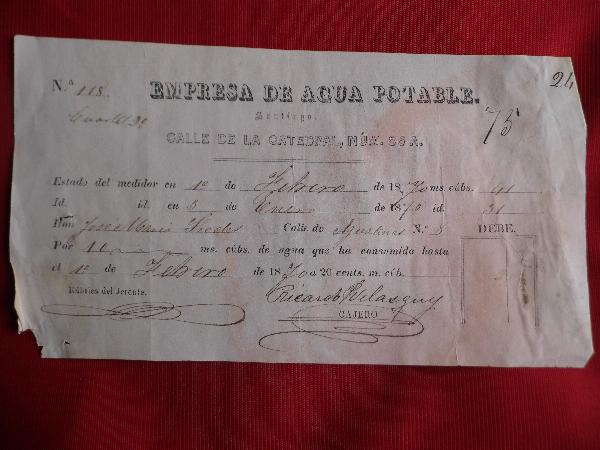 24
N.º 118.
EMPRESA DE AGUA POTABLE.
75
Cuartel 3º
Santiago.
CALLE DE LA CATEDRAL, NÚM. 86 A.
Estado del medidor en 1º de Febrero de 1870 ms. cúbs. 41
Id. id. en 3 de Enero de 1870 id. 31
Don José María Calle de Agustinas N.º 8 DEBE.
Por ms. cúbs. de agua que ha consumido hasta
el 1º de Febrero de 1870 a 20 cents. m. cúb.
Rúbrica del Jerente.
Ricardo Velasquez
CAJERO